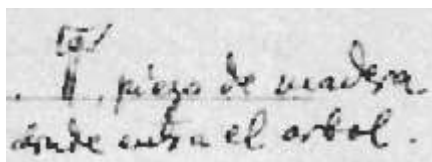 pieza de madera
donde entra el arbol.